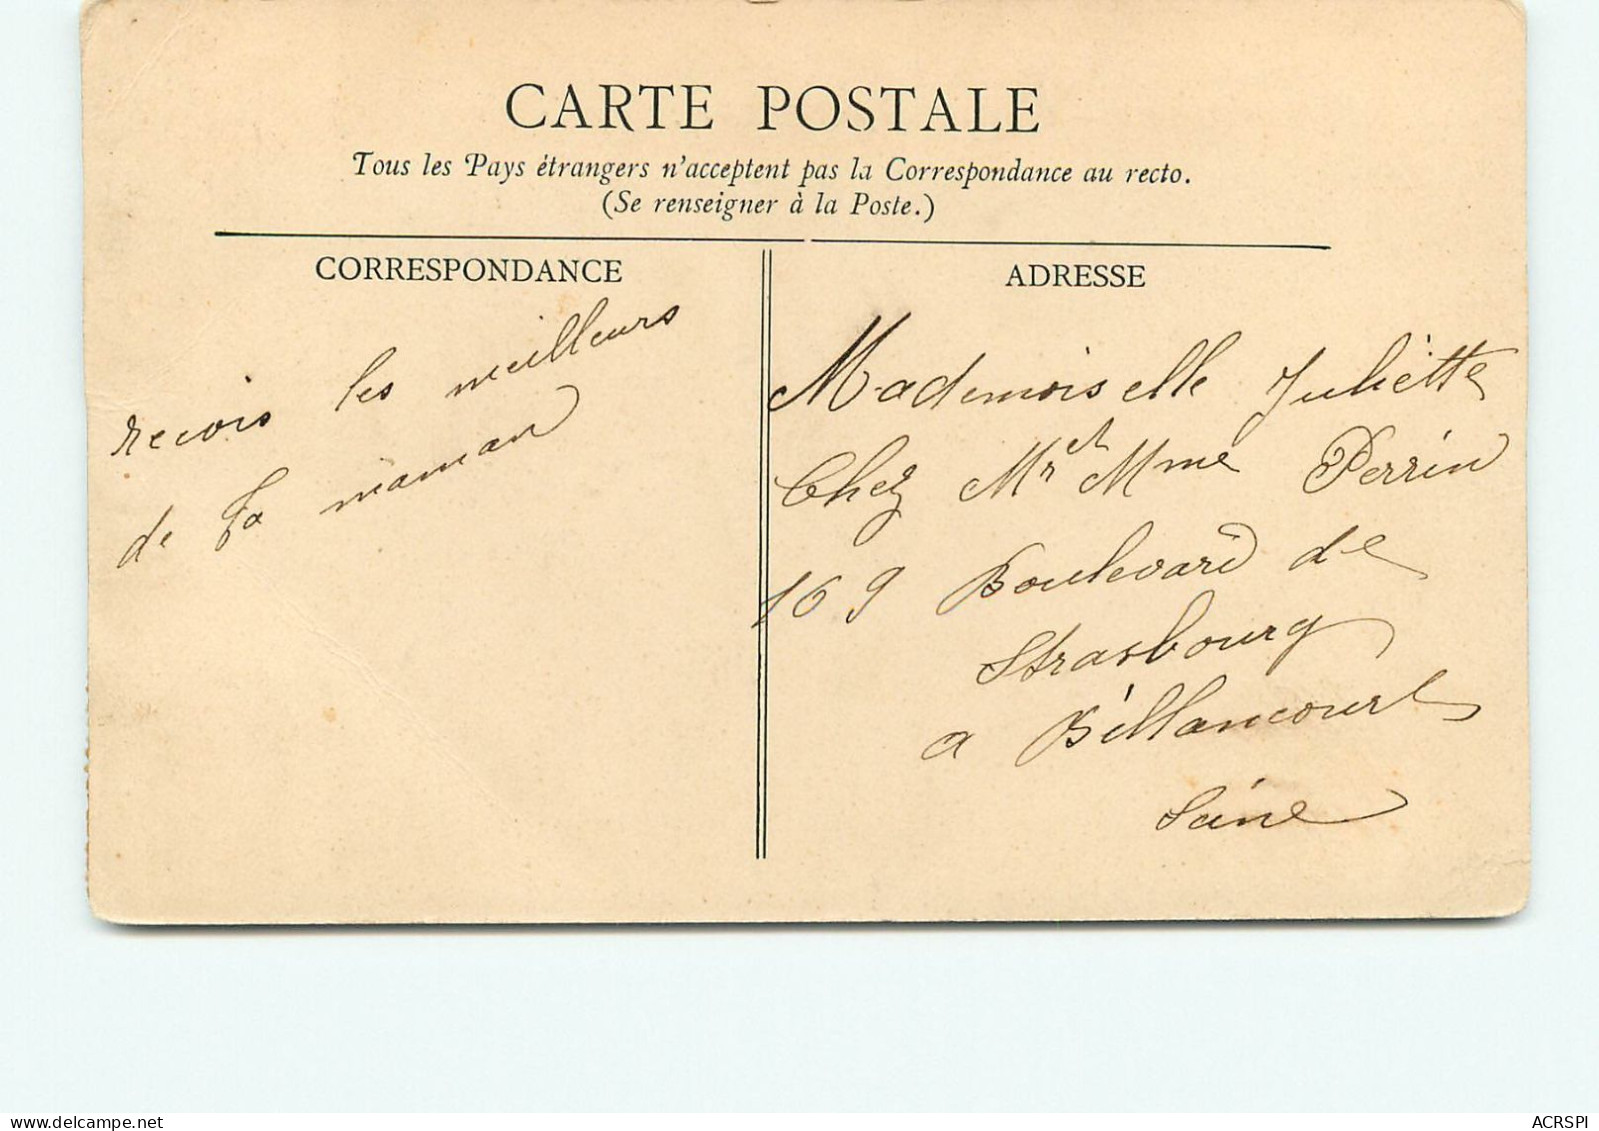 CARTE POSTALE
Tous les Pays étrangers n'acceptent pas la Correspondance au recto.
(Se renseigner à la Poste.)
CORRESPONDANCE
recois les meilleurs
de ta maman
ADRESSE
Mademoiselle Juliètte
Chez Mr et Mme Perrin
169 Boulevard de
Strasbourg
a Billancourt
Seine
ACRSPI